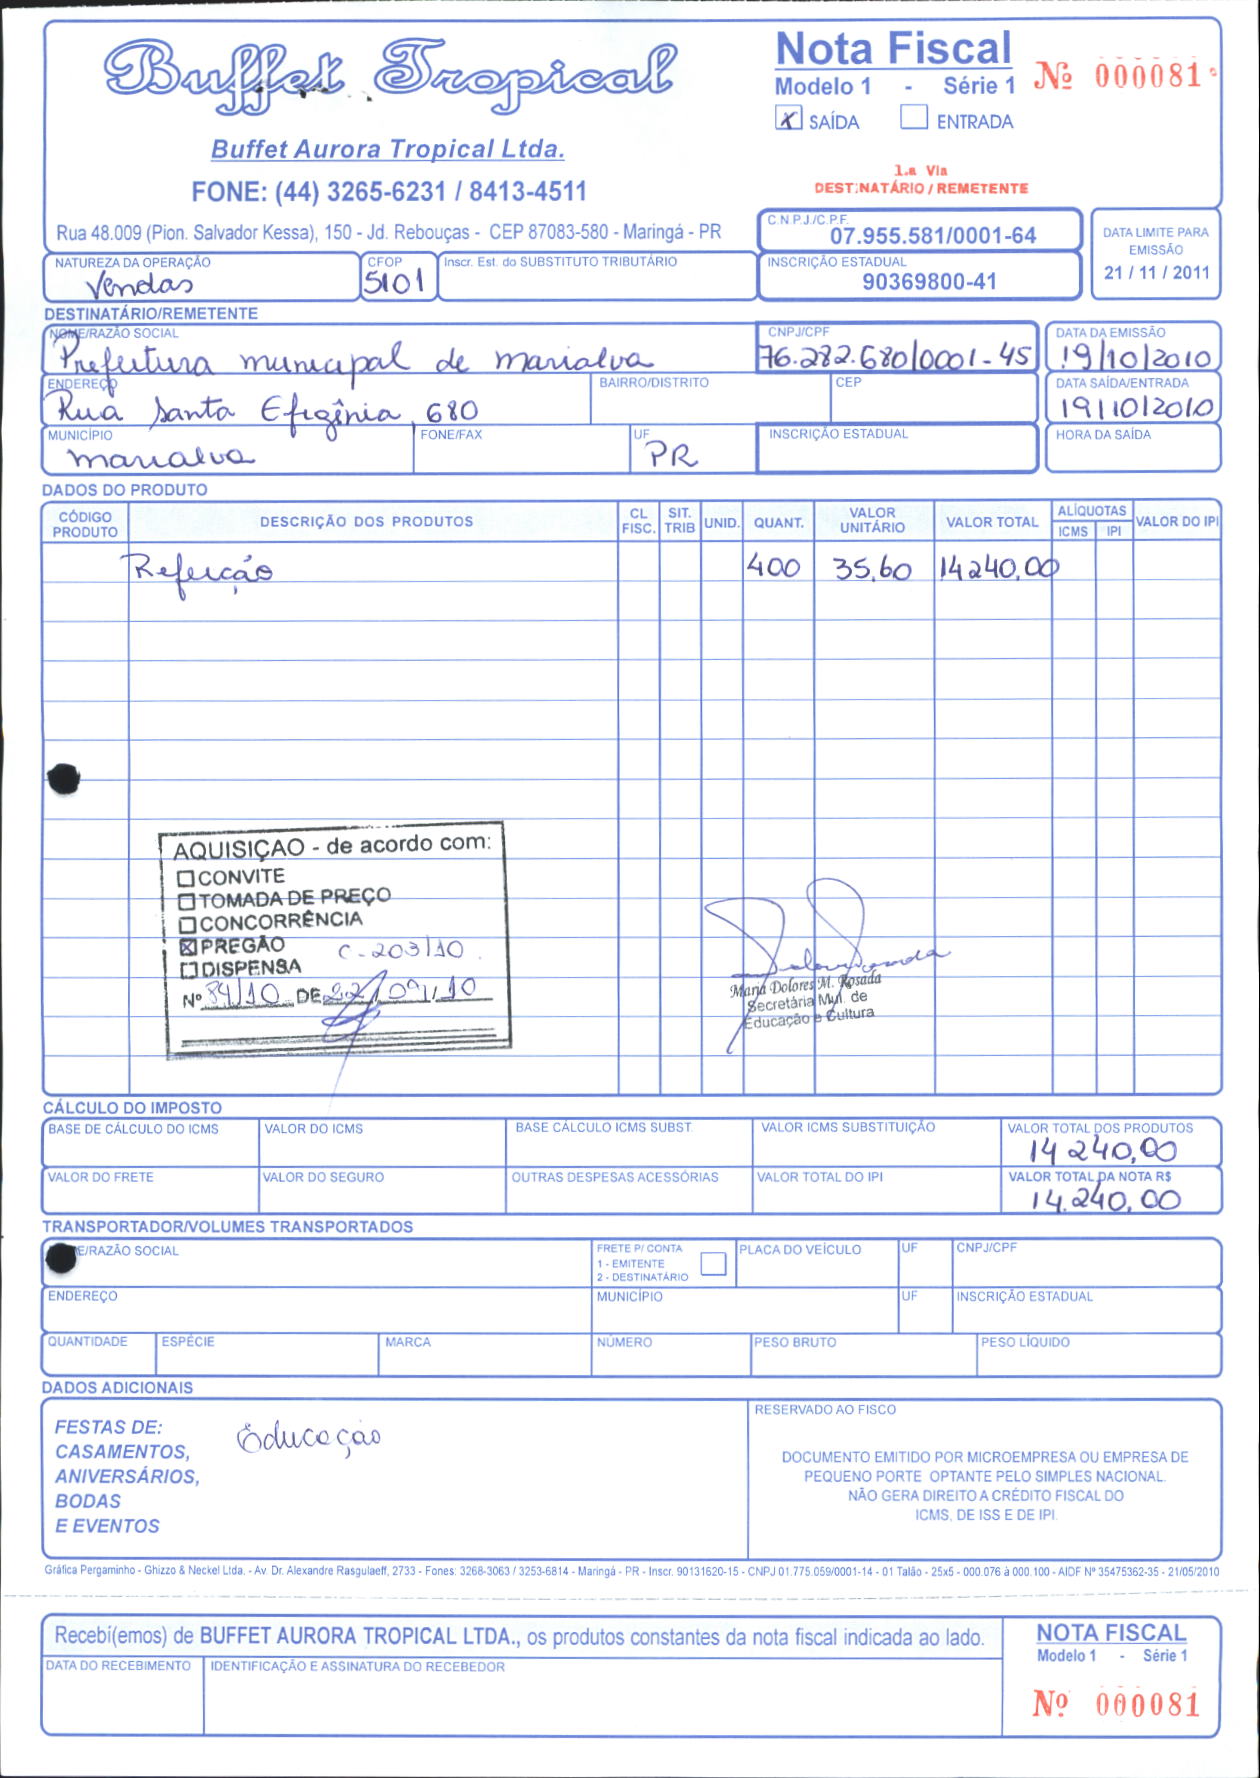 Buffet Tropical
Buffet Aurora Tropical Ltda.
FONE: (44) 3265-6231 / 8413-4511
Rua 48.009 (Pion. Salvador Kessa), 150 - Jd. Rebouças - CEP 87083-580 - Maringá - PR
Nota Fiscal
Modelo 1 - Série 1
Nº 000081
X SAÍDA ENTRADA
1.a Via
DESTINATÁRIO / REMETENTE
C.N.P.J./C.P.F.
07.955.581/0001-64
DATA LIMITE PARA
EMISSÃO
21 / 11 / 2011
NATUREZA DA OPERAÇÃO
Vendas
CFOP
5101
Inscr. Est. do SUBSTITUTO TRIBUTÁRIO
INSCRIÇÃO ESTADUAL
90369800-41
DESTINATÁRIO/REMETENTE
NOME/RAZÃO SOCIAL
Prefeitura municipal de marialva
CNPJ/CPF
76.282.680/0001-45
DATA DA EMISSÃO
19/10/2010
ENDEREÇO
Rua Santa Efigênia, 680
BAIRRO/DISTRITO
CEP
DATA SAÍDA/ENTRADA
19/10/2010
MUNICÍPIO
marialva
FONE/FAX
UF
PR
INSCRIÇÃO ESTADUAL
HORA DA SAÍDA
DADOS DO PRODUTO
CÓDIGO PRODUTO DESCRIÇÃO DOS PRODUTOS CL FISC. SIT. TRIB UNID. QUANT. VALOR UNITÁRIO VALOR TOTAL ALÍQUOTAS ICMS IPI VALOR DO IPI
Refeição 400 35,60 14240,00
AQUISIÇAO - de acordo com:
CONVITE
TOMADA DE PREÇO
CONCORRÊNCIA
X PREGÃO C-203/10
DISPENSA
Nº 84/10 DE 22/09/10
Maria Dolores M. Rosada
Secretária Mul. de
Educação e Cultura
CÁLCULO DO IMPOSTO
BASE DE CÁLCULO DO ICMS
VALOR DO ICMS
BASE CÁLCULO ICMS SUBST.
VALOR ICMS SUBSTITUIÇÃO
VALOR TOTAL DOS PRODUTOS
14240,00
VALOR DO FRETE
VALOR DO SEGURO
OUTRAS DESPESAS ACESSÓRIAS
VALOR TOTAL DO IPI
VALOR TOTAL DA NOTA R$
14.240,00
TRANSPORTADOR/VOLUMES TRANSPORTADOS
E/RAZÃO SOCIAL
FRETE P/ CONTA
1 - EMITENTE
2 - DESTINATÁRIO
PLACA DO VEÍCULO
UF
CNPJ/CPF
ENDEREÇO
MUNICÍPIO
UF
INSCRIÇÃO ESTADUAL
QUANTIDADE
ESPÉCIE
MARCA
NÚMERO
PESO BRUTO
PESO LÍQUIDO
DADOS ADICIONAIS
FESTAS DE:
CASAMENTOS,
ANIVERSÁRIOS,
BODAS
E EVENTOS
Educação
RESERVADO AO FISCO
DOCUMENTO EMITIDO POR MICROEMPRESA OU EMPRESA DE
PEQUENO PORTE OPTANTE PELO SIMPLES NACIONAL.
NÃO GERA DIREITO A CRÉDITO FISCAL DO
ICMS, DE ISS E DE IPI.
Gráfica Pergaminho - Ghizzo & Neckel Ltda. - Av. Dr. Alexandre Rasgulaeff, 2733 - Fones: 3268-3063 / 3253-6814 - Maringá - PR - Inscr. 90131620-15 - CNPJ 01.775.059/0001-14 - 01 Talão - 25x5 - 000.076 à 000.100 - AIDF Nº 35475362-35 - 21/05/2010
Recebí(emos) de BUFFET AURORA TROPICAL LTDA., os produtos constantes da nota fiscal indicada ao lado.
DATA DO RECEBIMENTO
IDENTIFICAÇÃO E ASSINATURA DO RECEBEDOR
NOTA FISCAL
Modelo 1 - Série 1
Nº 000081